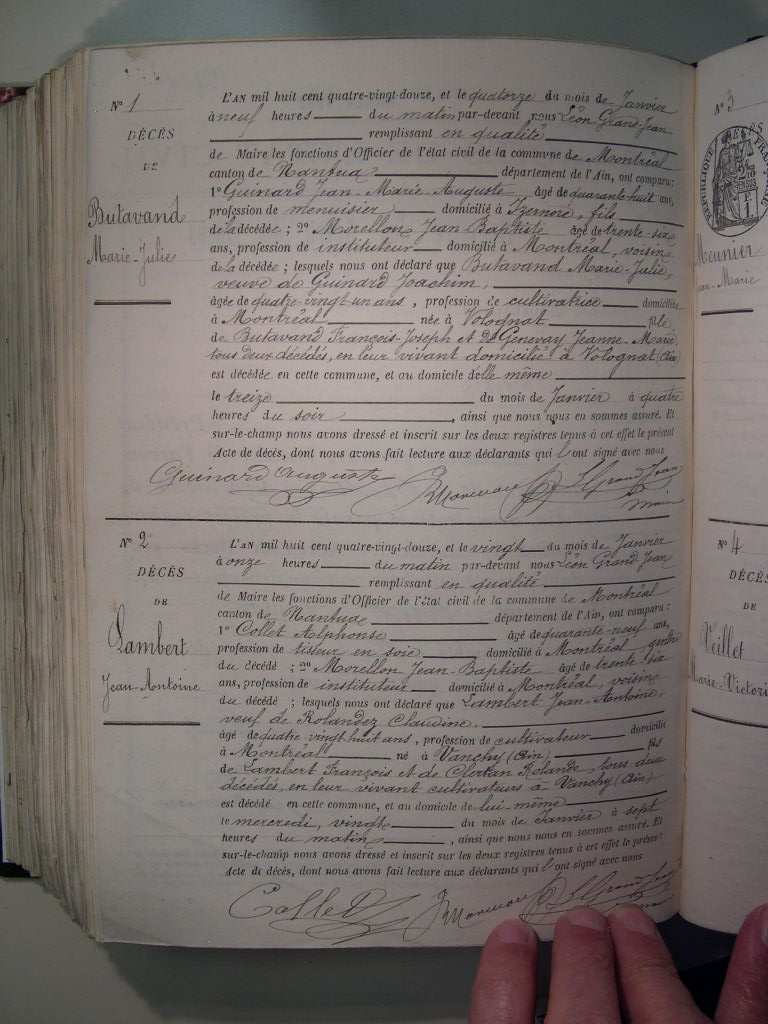 N° 1
DÉCÈS
DE
Butavand
Marie-Julie
L'AN mil huit cent quatre-vingt-douze, et le quatorze du mois de Janvier
à neuf heures du matin par-devant nous Léon Grand-Jean
remplissant en qualité
de Maire les fonctions d'Officier de l'état civil de la commune de Montréal
canton de Nantua département de l'Ain, ont comparu :
1° Guinard Jean-Marie-Auguste âgé de quarante huit ans,
profession de menuisier domicilié à Izernore, fils
de la décédée ; 2° Morellon Jean Baptiste âgé de trente-six
ans, profession de instituteur domicilié à Montréal, voisin
de la décédée ; lesquels nous ont déclaré que Butavand Marie-Julie,
veuve de Guinard Joachim,
âgée de quatre-vingt-un ans, profession de cultivatrice domiciliée
à Montréal née à Volognat fille
de Butavand François-Joseph et de Genevay Jeanne-Marie,
tous deux décédés, en leur vivant domicilié à Volognat (Ain
est décédée en cette commune, et au domicile d'elle même
le treize du mois de Janvier à quatre
heures du soir, ainsi que nous nous en sommes assuré. Et
sur-le-champ nous avons dressé et inscrit sur les deux registres tenus à cet effet le présent
Acte de décès, dont nous avons fait lecture aux déclarants qui l'ont signé avec nous
Guinard Auguste L Grand Jean
maire
N° 2
DÉCÈS
DE
Lambert
Jean-Antoine
L'AN mil huit cent quatre-vingt-douze, et le vingt du mois de Janvier
à onze heures du matin par-devant nous Léon Grand Jean
remplissant en qualité
de Maire les fonctions d'Officier de l'état civil de la commune de Montréal
canton de Nantua département de l'Ain, ont comparu :
1° Collet Alphonse âgé de quarante-neuf ans,
profession de tisseur en soie domicilié à Montréal, gendre
du décédé ; 2° Morellon Jean-Baptiste âgé de trente-six
ans, profession de instituteur domicilié à Montréal, voisin
du décédé ; lesquels nous ont déclaré que Lambert Jean-Antoine,
veuf de Rolandez Claudine,
âgé de quatre vingt huit ans, profession de cultivateur domicilié
à Montréal né à Vanchy (Ain) fils
de Lambert François et de Clertan Rolande, tous deux
décédés, en leur vivant cultivateurs à Vanchy (Ain)
est décédé en cette commune, et au domicile de lui-même
le mercredi, vingt du mois de Janvier à sept
heures du matin, ainsi que nous nous en sommes assuré. Et
sur-le-champ nous avons dressé et inscrit sur les deux registres tenus à cet effet le présent
Acte de décès, dont nous avons fait lecture aux déclarants qui l'ont signé avec nous
Collet L Grand Jean
N° 3
DÉCÈS
RÉPUBLIQUE FRANÇAISE
Meunier
N° 4
DÉCÈS
DE
Veillet
Marie-Victori